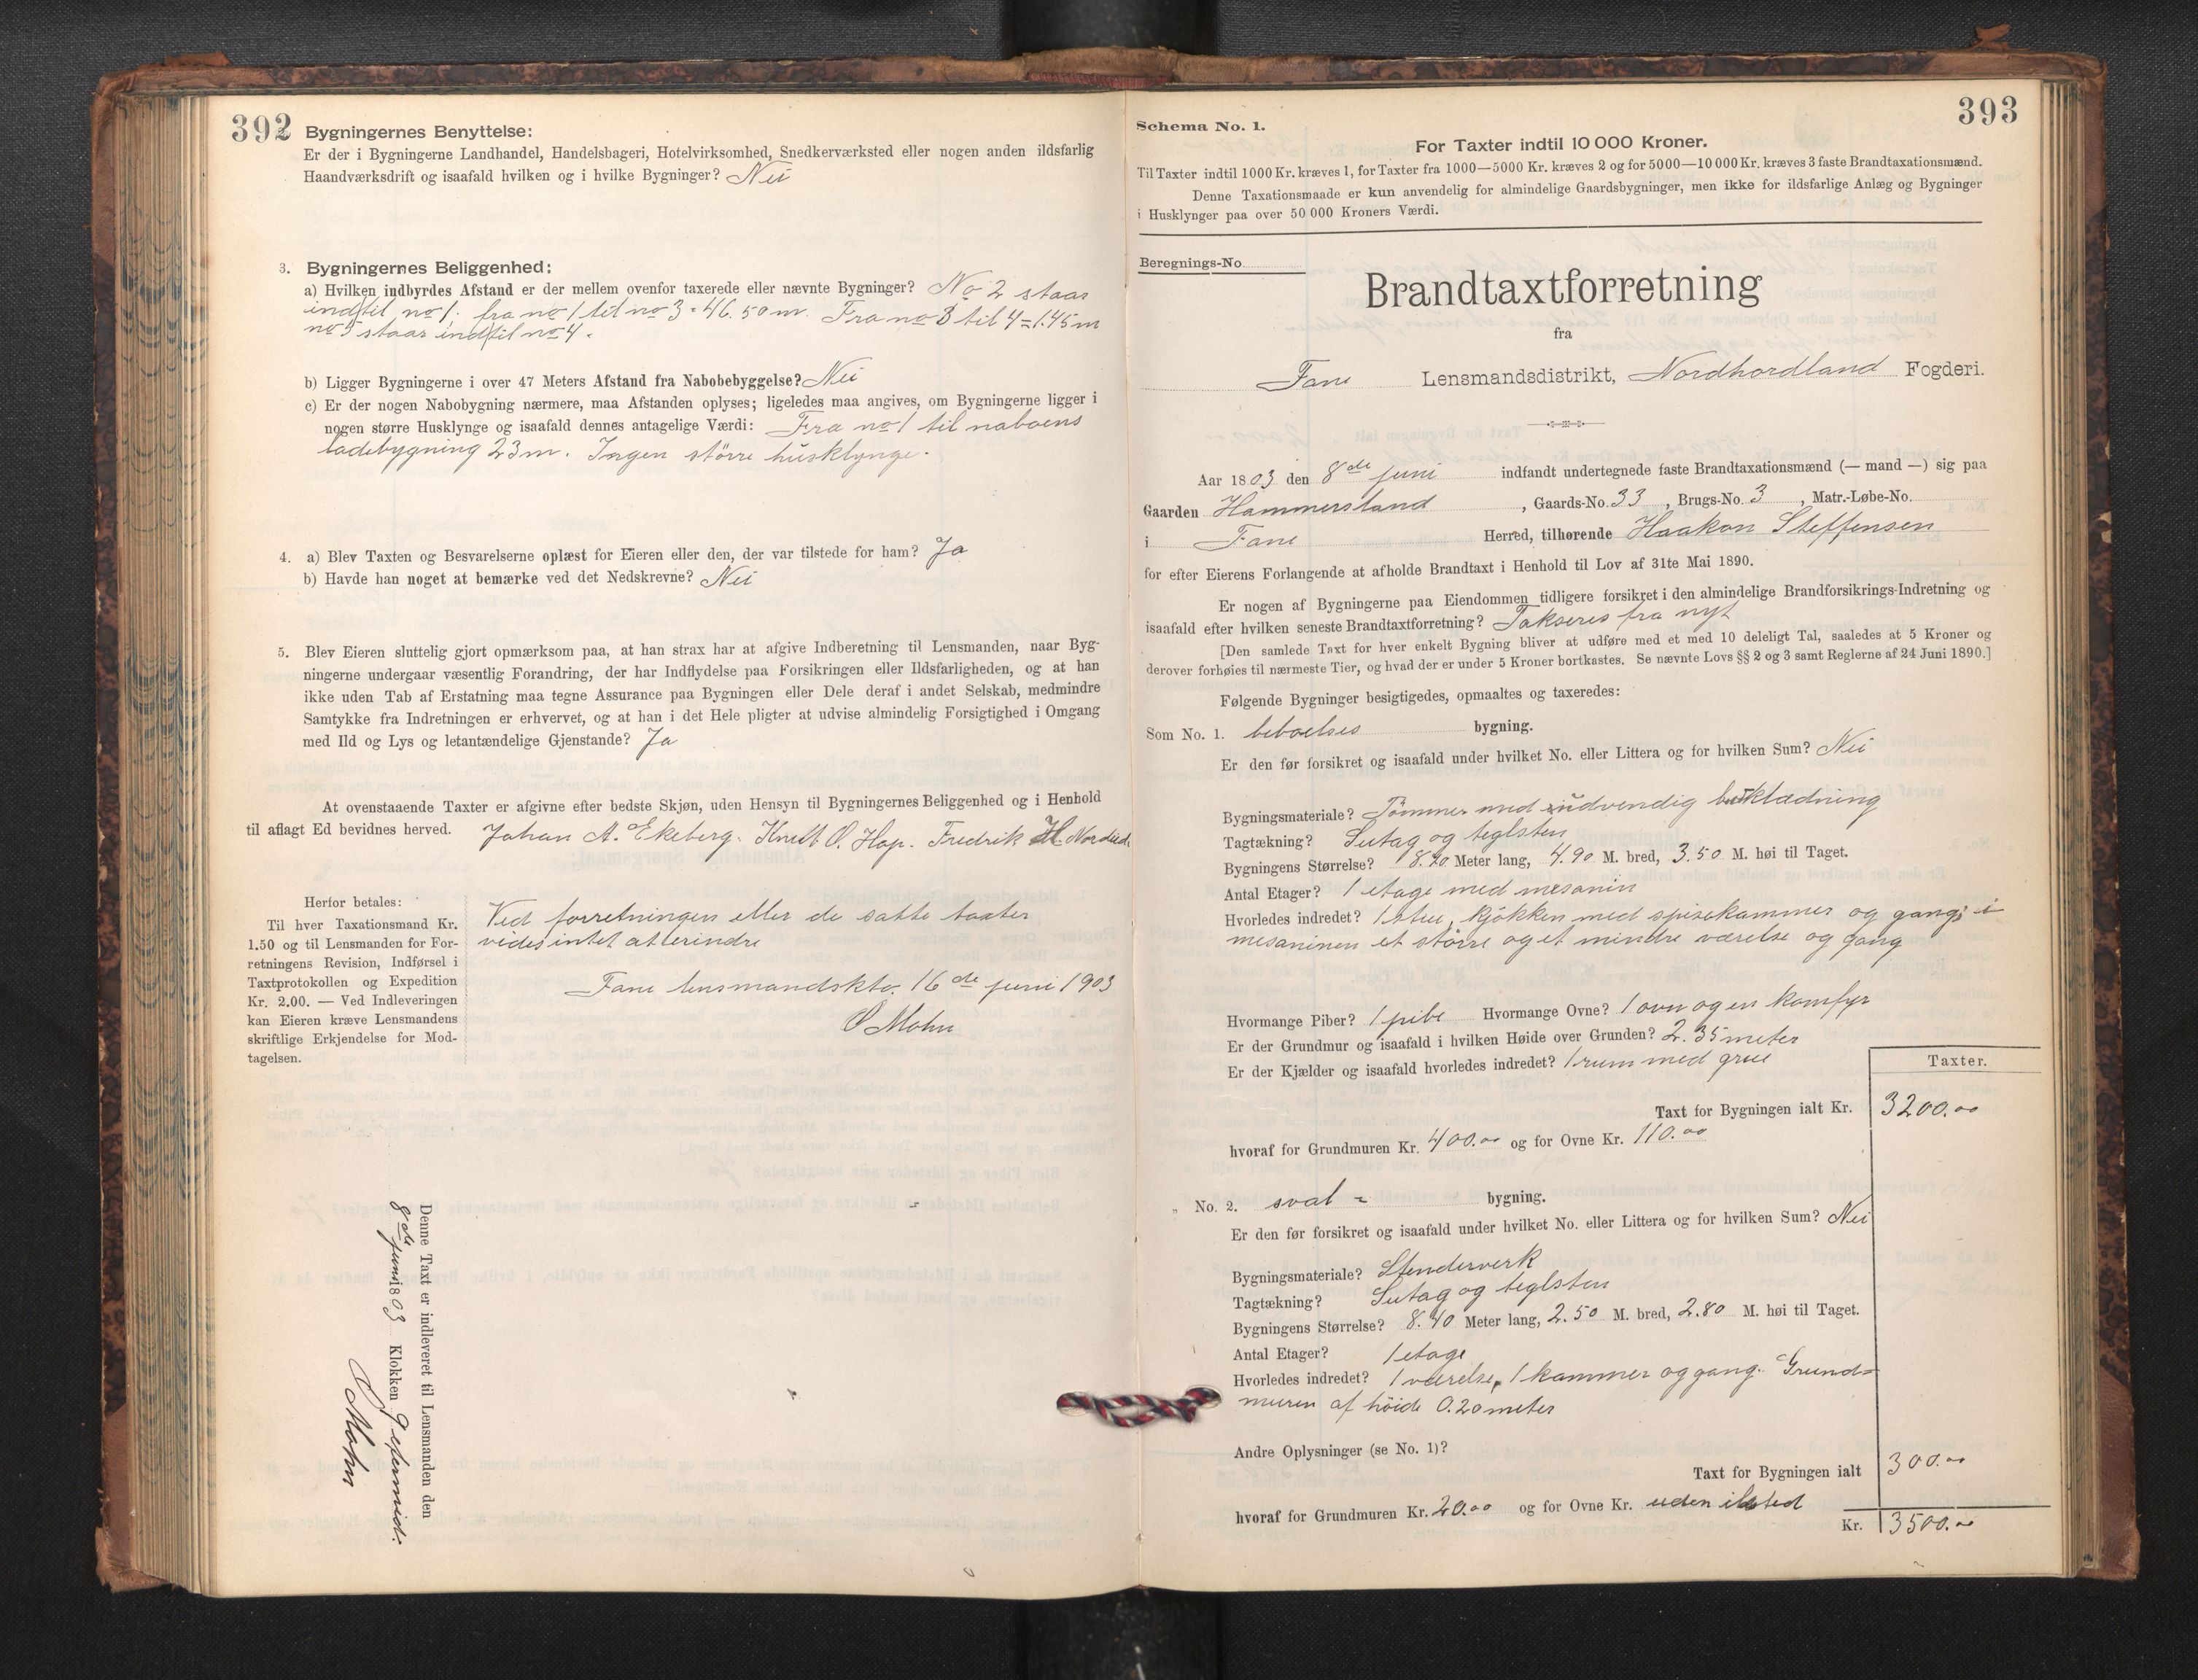 392
Bygningernes Benyttelse:
Er der i Bygningerne Landhandel, Handelsbageri, Hotelvirksomhed, Snedkerværksted eller nogen anden ildsfarlig
Haandværksdrift og isaafald hvilken og i hvilke Bygninger? Nei
3. Bygningernes Beliggenhed:
a) Hvilken indbyrdes Afstand er der mellem ovenfor taxerede eller nævnte Bygninger? No 2 staar
indtil no 1. fra no 1 til no 3 = 46.50 m. Fra no 3 til 4 = 1.45 m
no 5 staar indtil no 4.
b) Ligger Bygningerne i over 47 Meters Afstand fra Nabobebyggelse? Nei
c) Er der nogen Nabobygning nærmere, maa Afstanden oplyses; ligeledes maa angives, om Bygningerne ligger i
nogen større Husklynge og isaafald dennes antagelige Værdi: Fra no 1 til naboens
ladebygning 23 m. Ingen större husklynge.
4. a) Blev Taxten og Besvarelserne oplæst for Eieren eller den, der var tilstede for ham? Ja
b) Havde han noget at bemærke ved det Nedskrevne? Nei
5. Blev Eieren sluttelig gjort opmærksom paa, at han strax har at afgive Indberetning til Lensmanden, naar Byg-
ningerne undergaar væsentlig Forandring, der har Indflydelse paa Forsikringen eller Ildsfarligheden, og at han
ikke uden Tab af Erstatning maa tegne Assurance paa Bygningen eller Dele deraf i andet Selskab, medmindre
Samtykke fra Indretningen er erhvervet, og at han i det Hele pligter at udvise almindelig Forsigtighed i Omgang
med Ild og Lys og letantændelige Gjenstande? Ja
At ovenstaaende Taxter er afgivne efter bedste Skjøn, uden Hensyn til Bygningernes Beliggenhed og i Henhold
til aflagt Ed bevidnes herved. Johan A. Ekeberg. Knut O. Hop. Fredrik H.
Herfor betales:
Til hver Taxationsmand Kr.
1.50 og til Lensmanden for For-
retningens Revision, Indførsel i
Taxtprotokollen og Expedition
Kr. 2.00. — Ved Indleveringen
kan Eieren kræve Lensmandens
skriftlige Erkjendelse for Mod-
tagelsen.
Ved forretningen eller de satte taxter
vides intet at erindre
Fane lensmandsktr. 16de juni 1903
O Mohn
Denne Taxt er indleveret til Lensmanden den
8de juni 1803 Klokken 9 efterm
O Mohn
393
Schema No. 1.
For Taxter indtil 10 000 Kroner.
Til Taxter indtil 1000 Kr. kræves 1, for Taxter fra 1000—5000 Kr. kræves 2 og for 5000—10 000 Kr. kræves 3 faste Brandtaxationsmænd.
Denne Taxationsmaade er kun anvendelig for almindelige Gaardsbygninger, men ikke for ildsfarlige Anlæg og Bygninger
i Husklynger paa over 50 000 Kroners Værdi.
Beregnings-No.
Brandtaxtforretning
fra
Fane Lensmandsdistrikt, Nordhordland Fogderi.
Aar 1803 den 8de juni indfandt undertegnede faste Brandtaxationsmænd (— mand —) sig paa
Gaarden Hammersland, Gaards-No. 33, Brugs-No. 3, Matr.-Løbe-No.
i Fane Herred, tilhørende Haakon Steffensen
for efter Eierens Forlangende at afholde Brandtaxt i Henhold til Lov af 31te Mai 1890.
Er nogen af Bygningerne paa Eiendommen tidligere forsikret i den almindelige Brandforsikrings-Indretning og
isaafald efter hvilken seneste Brandtaxtforretning? Takseres fra nyt
[Den samlede Taxt for hver enkelt Bygning bliver at udføre med et med 10 deleligt Tal, saaledes at 5 Kroner og
derover forhøies til nærmeste Tier, og hvad der er under 5 Kroner bortkastes. Se nævnte Lovs §§ 2 og 3 samt Reglerne af 24 Juni 1890.]
Følgende Bygninger besigtigedes, opmaaltes og taxeredes:
Som No. 1. beboelses bygning.
Er den før forsikret og isaafald under hvilket No. eller Littera og for hvilken Sum? Nei
Bygningsmateriale? Tömmer med udvendig bordklædning
Tagtækning? Sutag og teglsten
Bygningens Størrelse? 8.40 Meter lang, 4.90 M. bred, 3.50 M. høi til Taget.
Antal Etager? 1 etage med mesanin
Hvorledes indredet? 1 stue, kjökken med spisekammer og gang; i
mesaninen et större og et mindre værelse og gang
Hvormange Piber? 1 pibe Hvormange Ovne? 1 ovn og en komfyr
Er der Grundmur og isaafald i hvilken Høide over Grunden? 2.35 meter
Er der Kjælder og isaafald hvorledes indredet? 1 rum med grue
Taxter.
Taxt for Bygningen ialt Kr. 3200.00
hvoraf for Grundmuren Kr. 400.00 og for Ovne Kr. 110.00
„ No. 2. sval = bygning.
Er den før forsikret og isaafald under hvilket No. eller Littera og for hvilken Sum? Nei
Bygningsmateriale? Stenderverk
Tagtækning? Sutag og teglsten
Bygningens Størrelse? 8.40 Meter lang, 2.50 M. bred, 2.80 M. høi til Taget.
Antal Etager? 1 etage
Hvorledes indredet? 1 værelse, 1 kammer og gang. Grund=
muren af höide 0.20 meter
Andre Oplysninger (se No. 1)?
Taxt for Bygningen ialt 300.00
hvoraf for Grundmuren Kr. 20.00 og for Ovne Kr. uden ildsted
Kr. 3500.00